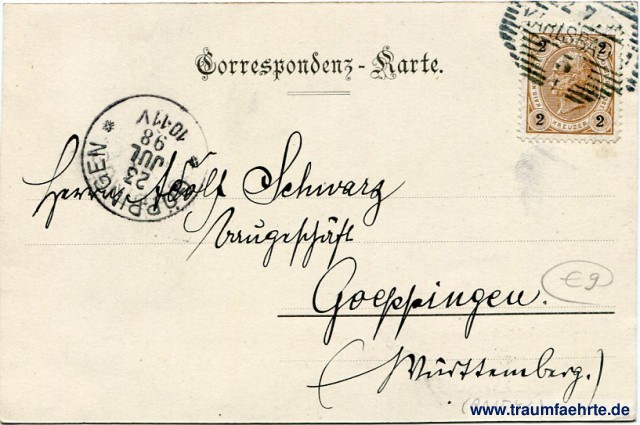 Correspondenz-Karte.
2 2
KREUZER
2 2
GOEPPINGEN
23
JUL
98
10-11V
Herrn Adolf Schwarz
Baugeschäft
Goeppingen.
(Württemberg.)
€9
www.traumfaehrte.de